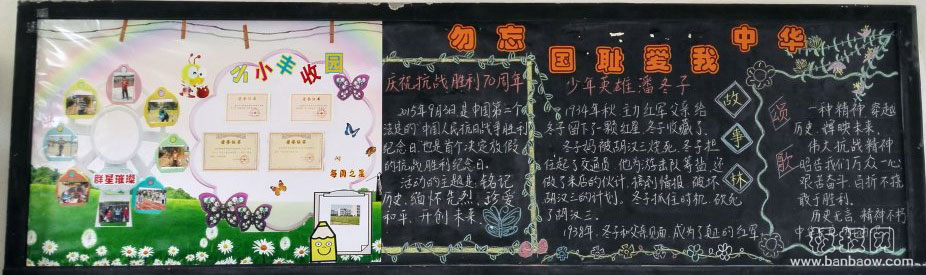 勿忘国耻爱我中华
小丰收园
群星璀璨
每周之星
庆祝抗战胜利70周年
2015年9月3日,是中国第二个
法定的"中国人民抗日战争胜利
纪念日,也是首个决定放假
的抗战胜利纪念日。
活动的主题是:铭记
历史、缅怀先烈、珍爱
和平、开创未来
少年英雄潘冬子
1934年秋,主力红军父亲给
冬子留下了一颗红星,冬子收藏了。
冬子妈被胡汉三烧死,冬子把
往起了交通员,他为游击队筹盐,还
做了米店的伙计,搞到情报,破坏
胡汉三的计划。冬子抓住时机,砍死
了胡汉三。
1938年,冬子和父亲见面,成为了真正的红军
故事林
颂歌
一种精神 穿越
历史,辉映未来。
伟大抗战精神
昭告我们万众一心
艰苦奋斗,百折不挠
敢于胜利。
历史无言,精神不朽
板报网
www.banbaow.com